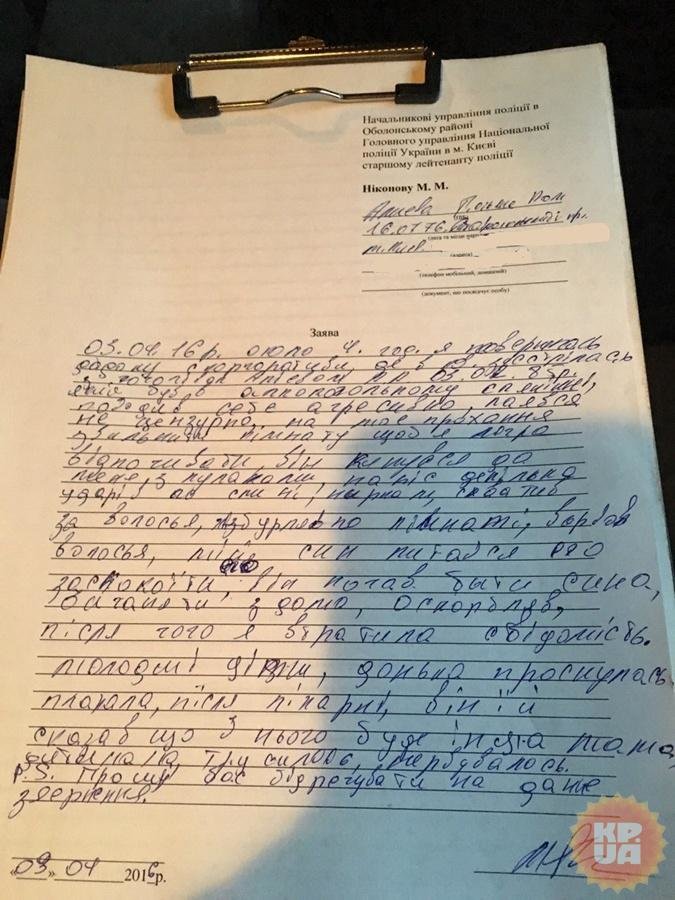 Начальникові управління поліції в
Оболонському районі
Головного управління Національної
поліції України в м. Києві
старшому лейтенанту поліції
Ніконову М. М.
16.07.76
(адреса)
(телефон мобільний, домашній)
(документ, що посвідчує особу)
Заява
03.04.16 р. около 4. год. я повернулась
додому
був в алкогольному
себе агресивно, лаявся
не цензурно, на моє прохання
кімнату щоб я могла
відпочивати він кинувся до
мене, з кулаками, наніс декілька
ударів по спині, ниркам, схатив
за волосья, по кімнаті, вирвав
волосья, мій син питався его
заспокоїти, він почав быти сина,
виганяти з дома, оскорбляв,
після чого я втратила свідомість.
молодші діти, донька проснулась
плакала, після лікарні, він їй
сказав що з нього буде інша мама,
P.S. Прошу вас відрегувати на дане
звернення.
«03» 04 2016р.
KP.
UA